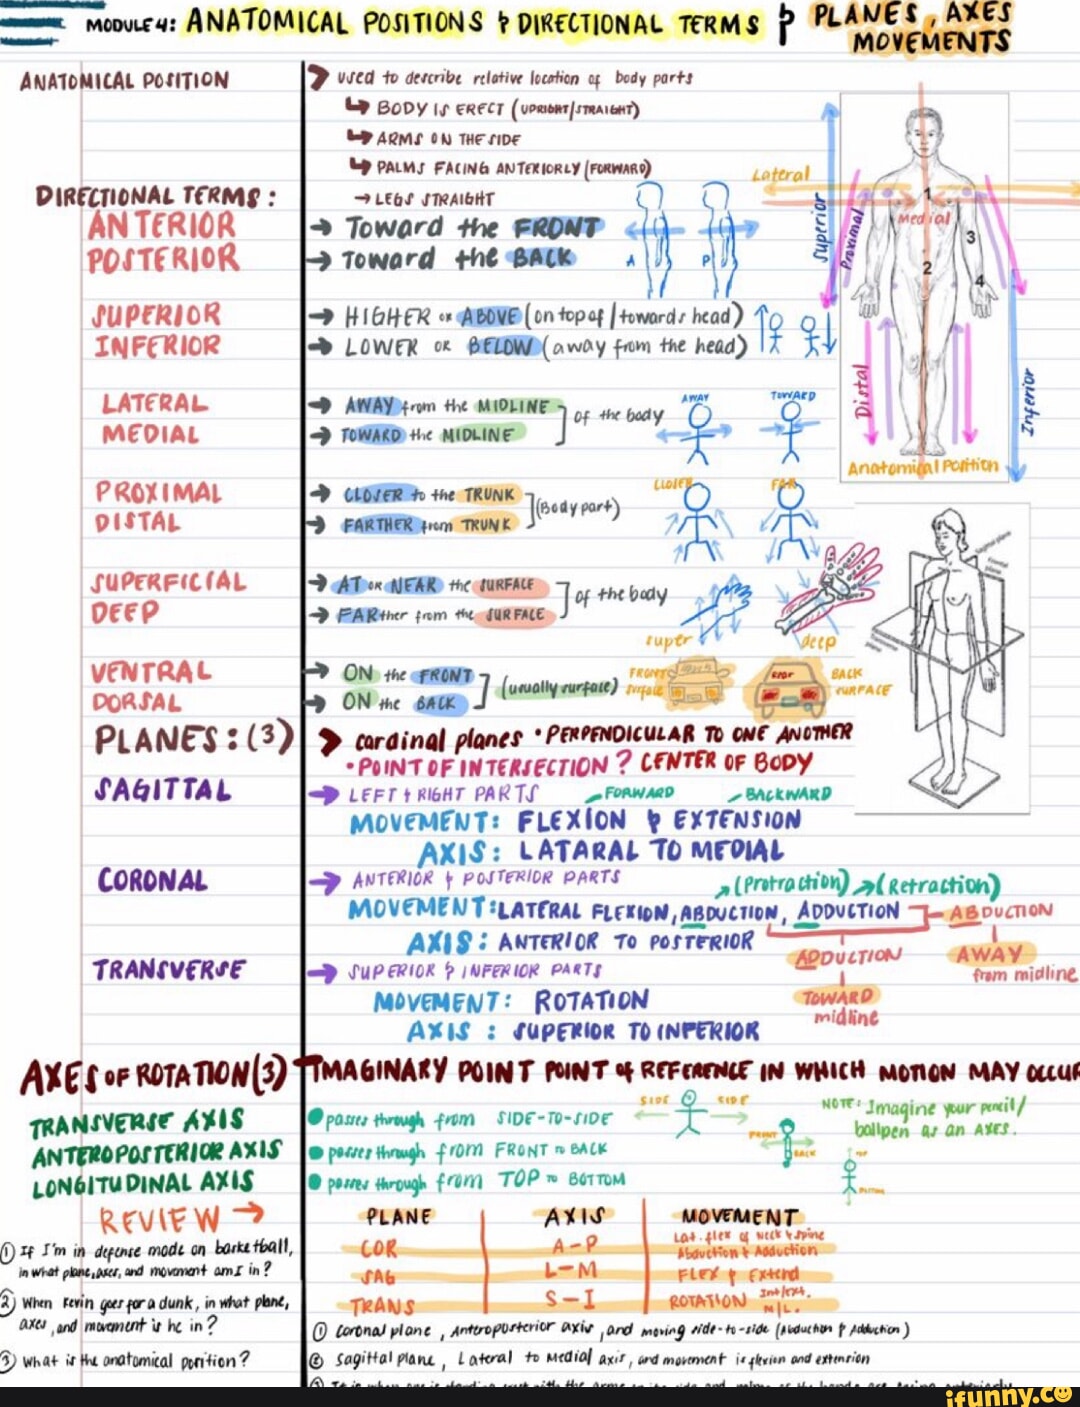 MODULE 4: ANATOMICAL POSITIONS & DIRECTIONAL TERMS & PLANES, AXES
MOVEMENTS
ANATOMICAL POSITION
used to describe relative location of body parts
BODY IS ERECT (UPRIGHT/STRAIGHT)
ARMS ON THE SIDE
PALMS FACING ANTERIORLY (FORWARD)
→ LEGS STRAIGHT
DIRECTIONAL TERMS:
ANTERIOR → Toward the FRONT
POSTERIOR → Toward the BACK
A P
SUPERIOR → HIGHER or ABOVE (on top of / towards head)
INFERIOR → LOWER OR BELOW (away from the head)
LATERAL → AWAY from the MIDLINE
MEDIAL → TOWARD the MIDLINE
of the body
AWAY TOWARD
PROXIMAL → CLOSER to the TRUNK
DISTAL → FARTHER from TRUNK
(Body part)
CLOSER FAR
SUPERFICIAL → AT OR NEAR the SURFACE
DEEP → FARther from the SURFACE
of the body
super deep
VENTRAL → ON the FRONT
DORSAL → ON the BACK
(usually surface)
FRONT
surface
rear
BACK
SURFACE
Lateral
Superior
Proximal
Medial
1
2
3
4
Distal
Inferior
Anatomical Position
Sagittal plane
Frontal plane
PLANES: (3) cardinal planes • PERPENDICULAR TO ONE ANOTHER
• POINT OF INTERSECTION? CENTER OF BODY
SAGITTAL → LEFT & RIGHT PARTS FORWARD BACKWARD
MOVEMENT: FLEXION & EXTENSION
AXIS: LATARAL TO MEDIAL
CORONAL → ANTERIOR & POSTERIOR PARTS → (Protraction) → (Retraction)
MOVEMENT: LATERAL FLEXION, ABDUCTION, ADDUCTION
ABDUCTION
AWAY
from midline
AXIS: ANTERIOR TO POSTERIOR
ADDUCTION
TOWARD
midline
TRANSVERSE → SUPERIOR & INFERIOR PARTS
MOVEMENT: ROTATION
AXIS: SUPERIOR TO INFERIOR
AXES OF ROTATION (3) IMAGINARY POINT POINT of REFERENCE IN WHICH MOTION MAY OCCUR
TRANSVERSE AXIS • passes through from SIDE-TO-SIDE
SIDE SIDE
ANTEROPOSTERIOR AXIS • passes through from FRONT to BACK
FRONT BACK
LONGITUDINAL AXIS • passes through from TOP to BOTTOM
TOP
BOTTOM
NOTE: Imagine your pencil/
ballpen as an AXES.
REVIEW →
① If I'm in defense mode on basketball,
in what plane, axes, and movement am I in?
② When Kevin goes for a dunk, in what plane,
axes, and movement is he in?
③ What is the anatomical position?
PLANE AXIS MOVEMENT
COR A-P Lat. flex of neck & spine
Abduction & Adduction
SAG L-M FLEX & Extend
TRANS S-I ROTATION Int/ext.
M/L.
① Coronal plane, Anteroposterior axis, and moving side-to-side (Abduction & Adduction)
② Sagittal plane, Lateral to Medial axis, and movement is flexion and extension
ifunny.co